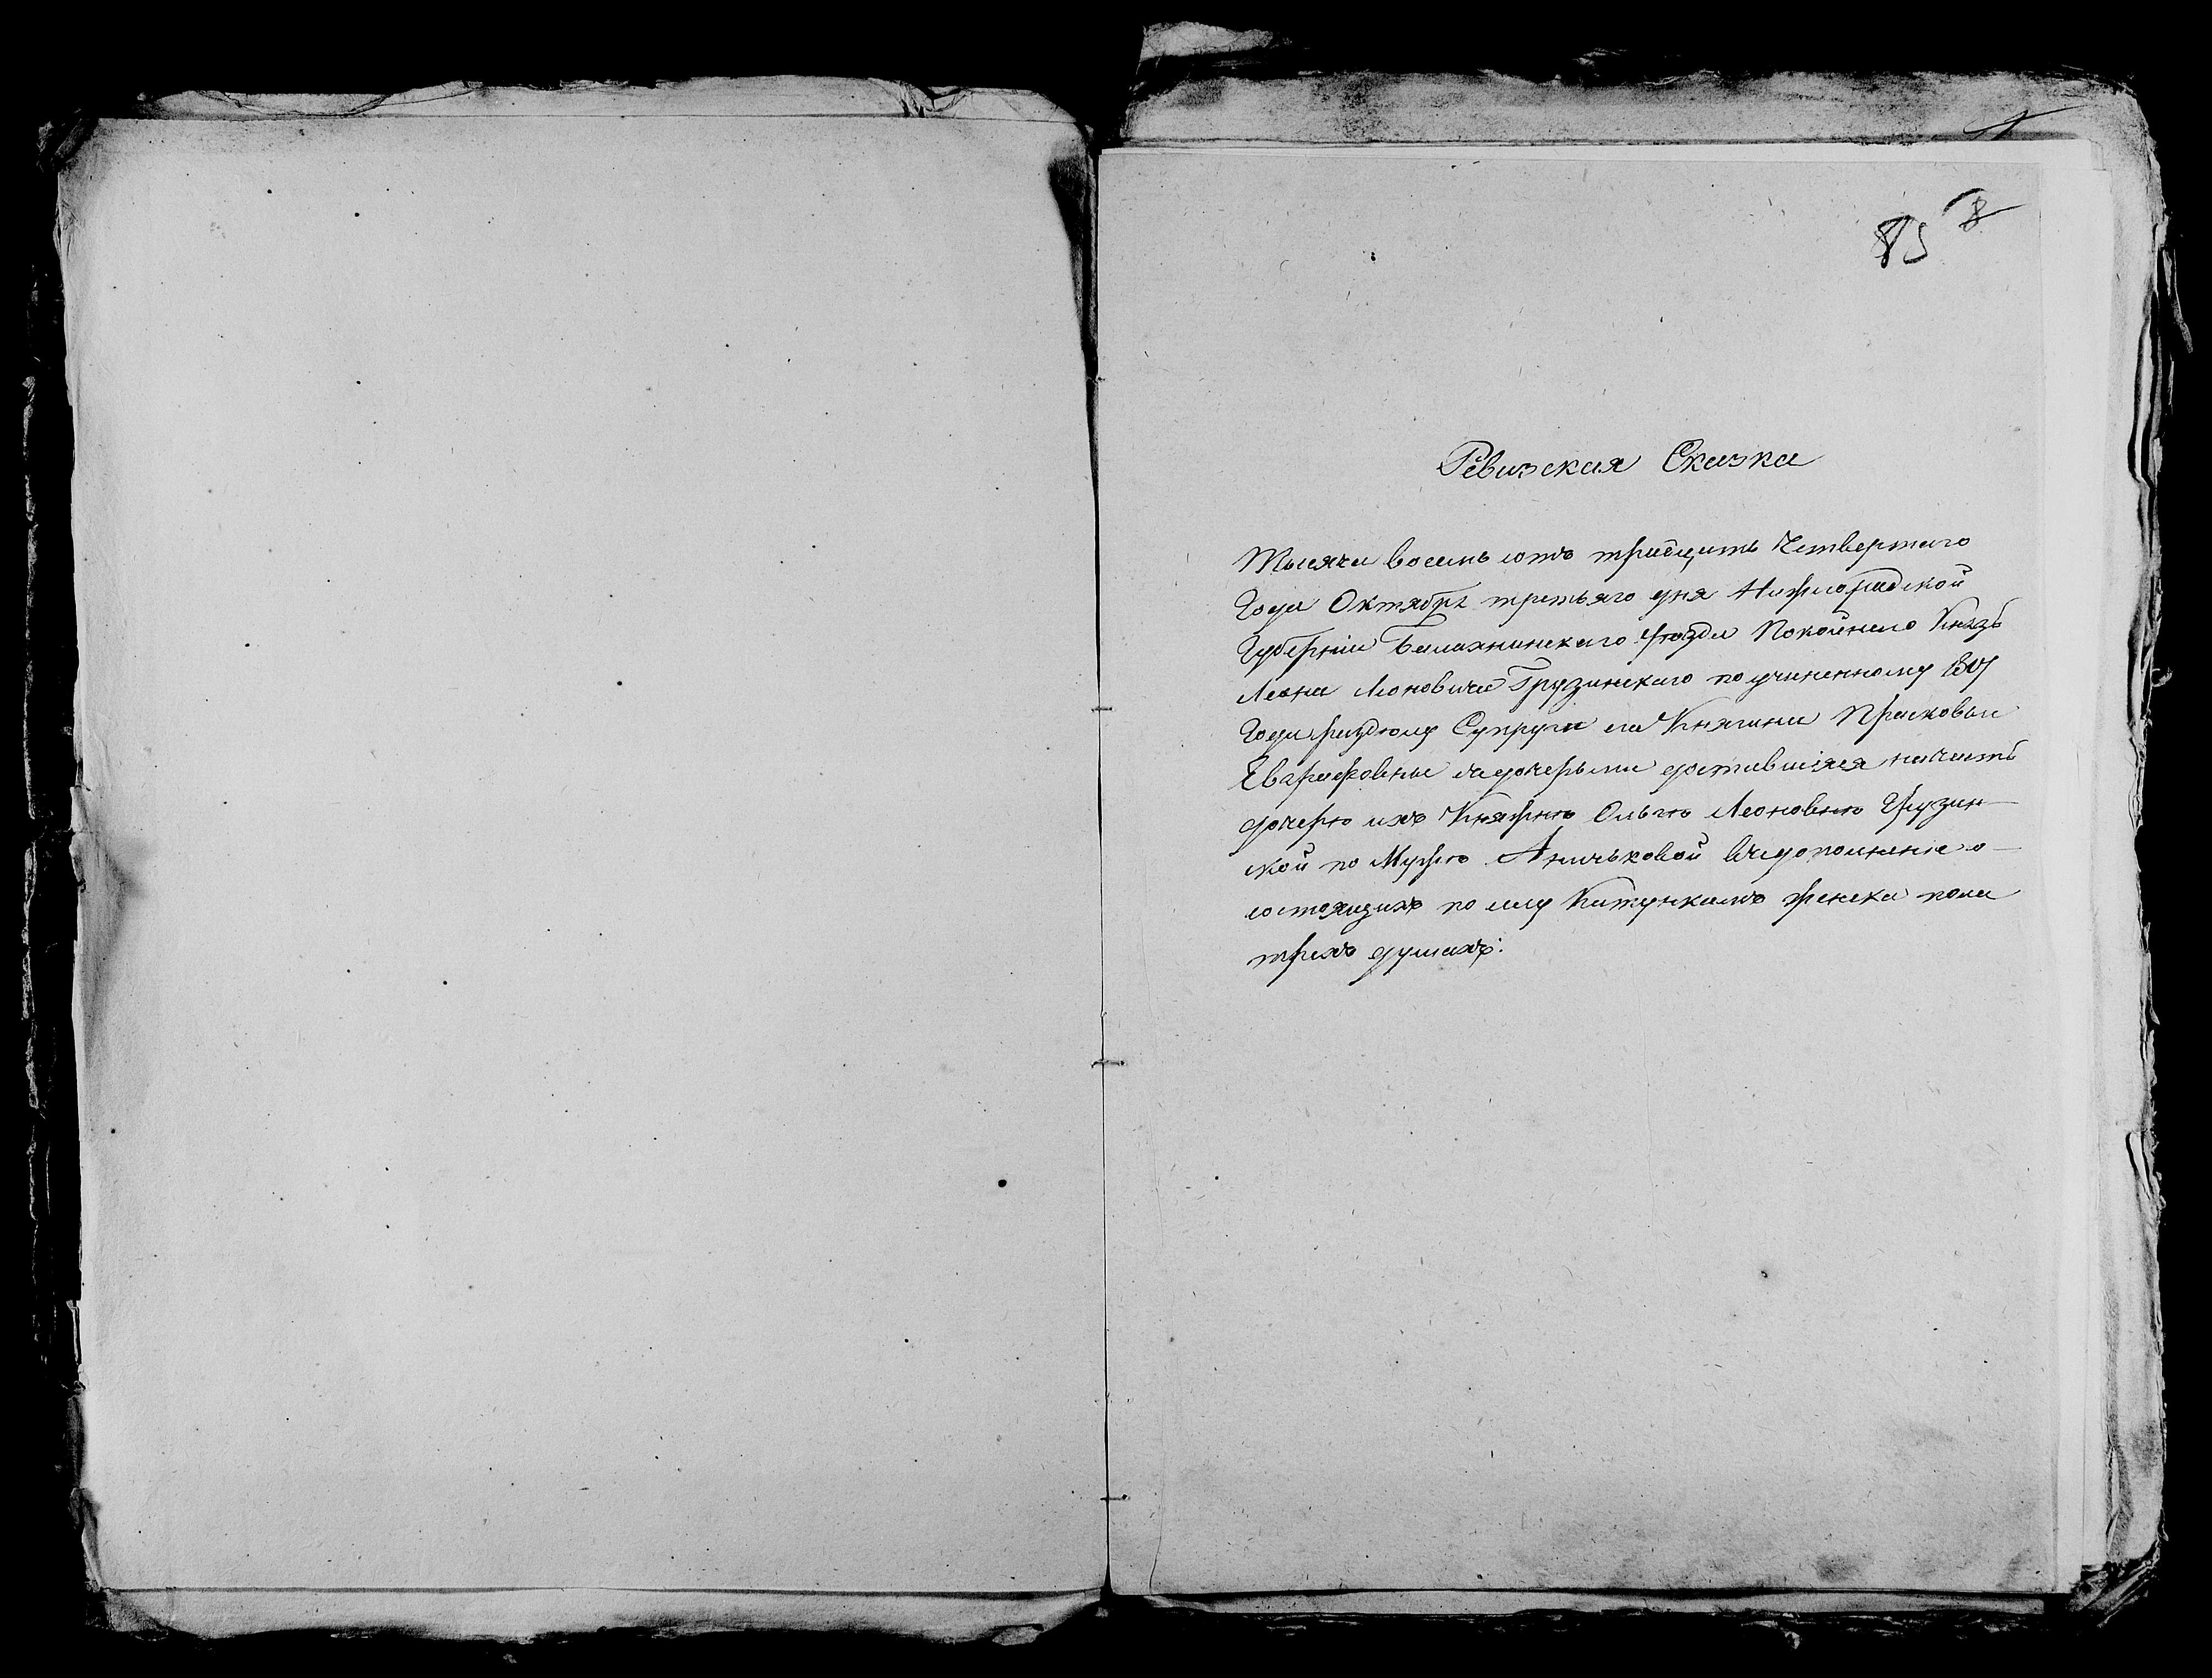 85
Ревизская Сказка
Тысяча восемь сотъ тридцать Четвертаго
Года Октября третьяго дня Нижегородской
Губерніи Балахнинскаго уѣзда Покойнаго Князь
Леона Леоновича Грузинскаго по учиненному
Года раздѣлу Супруги его Княгини Прасковьи
Евграфовны здочерьми доставшіяся начасть
дочерѣ ихъ Княжнѣ Ольгѣ Леоновнѣ Грузин-
ской по Мужѣ Аничьковой вдополненіе о-
состоящихъ по селу Катункамъ женска пола
трехъ душахъ.